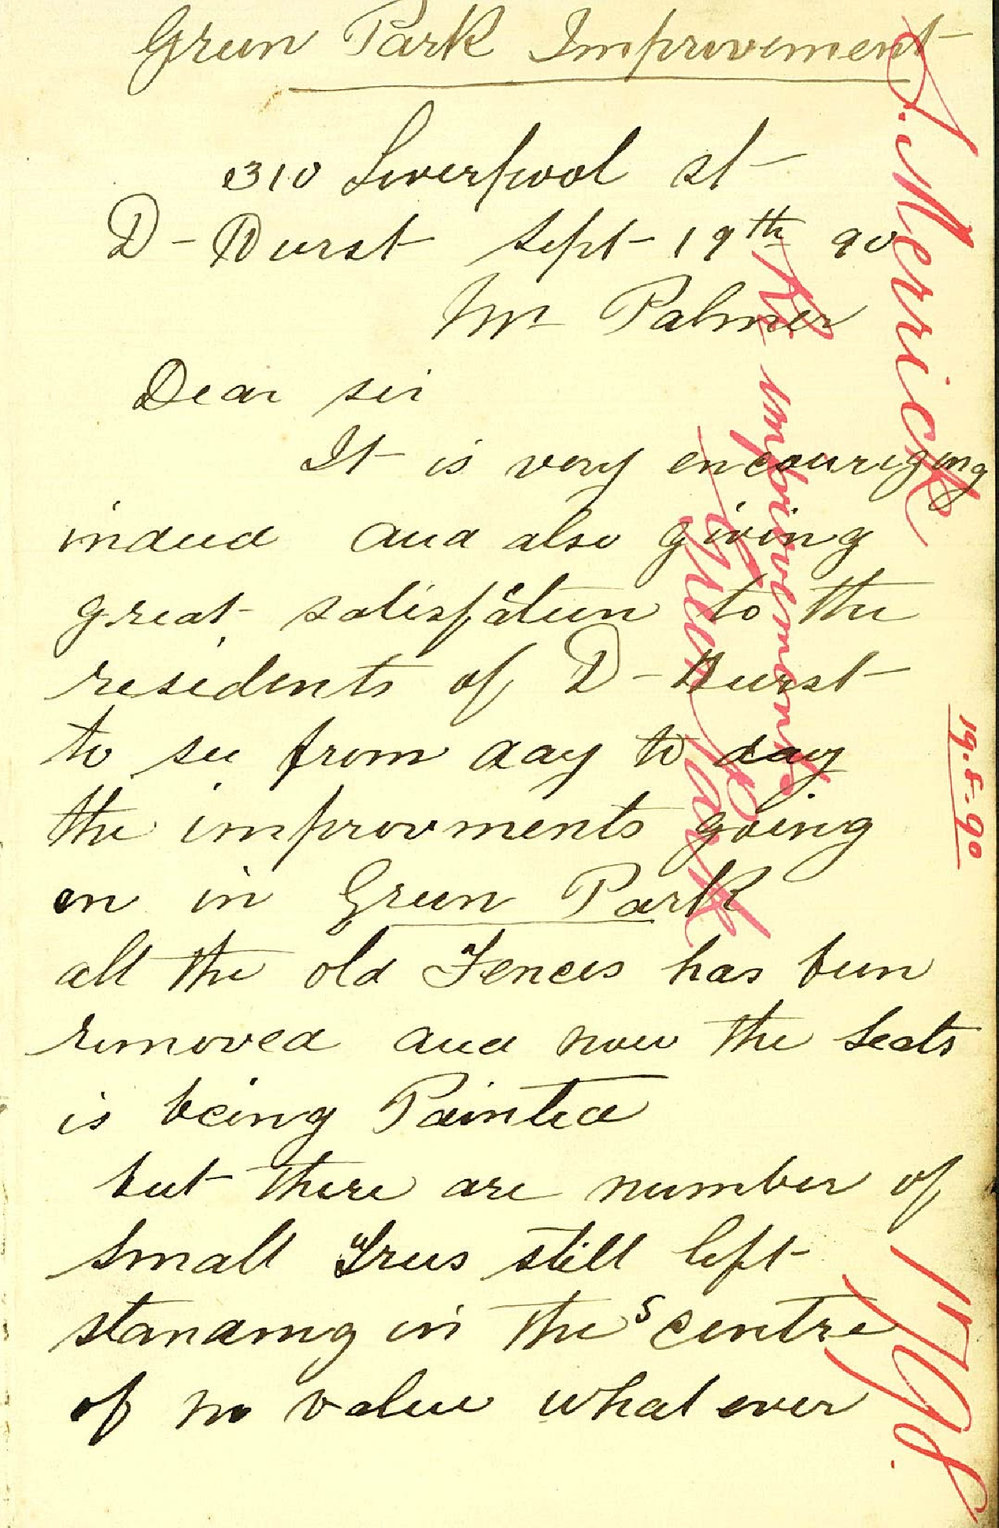 Green Park Improvement
310 Liverpool st
D-Hurst Sept 19th 90
Mr Palmer
Dear sir
It is very encourizing
indeed and also giving
great satisfaction to the
residents of D-Hurst
to see from day to day
the improvments going
on in Green Park
all the old Fences has been
removed and now the Seats
is being Painted
but there are number of
small Trees still left
standing in the centre
of no value what ever
S. Merrick
Re improvements
Green Park
19.8.90
1798